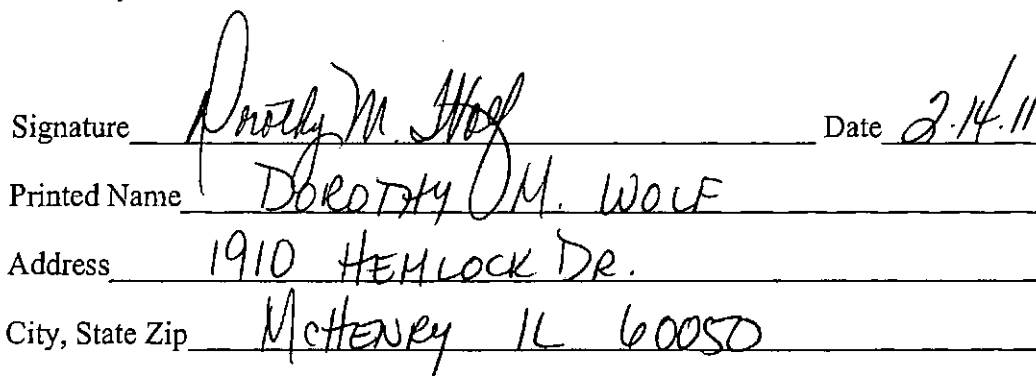 Signature Dorothy M. Wolf Date 2.14.11
Printed Name DOROTHY M. WOLF
Address 1910 HEMLOCK DR.
City, State Zip McHENRY IL 60050